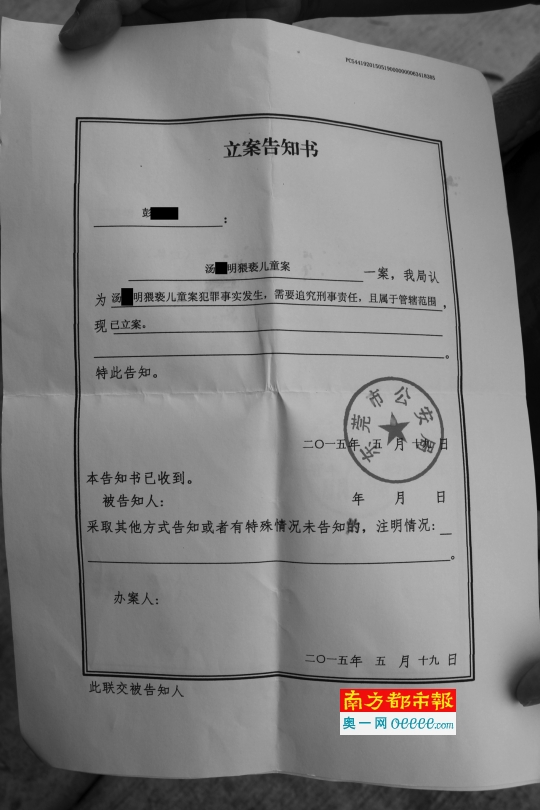 立案告知书
彭
:
汤 明猥亵儿童案 一案，我局认
为 汤 明猥亵儿童案犯罪事实发生，需要追究刑事责任，且属于管辖范围，
现 已立案。
。
特此告知。
东莞市公安局
二〇一五年 五 月 十九 日
本告知书已收到。
被告知人： 年 月 日
采取其他方式告知或者有特殊情况未告知的，注明情况：
。
办案人：
二〇一五年 五 月 十九 日
此联交被告知人
南方都市報
奥一网 oeeee.com